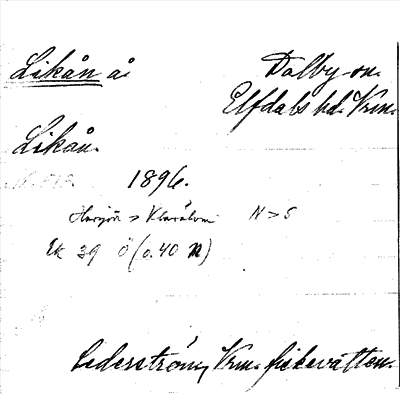 Likån å.
Dalby sn.
Elfdals hd. Vrm.
Likån.
1896.
> Klarälven N > S
Ek 39 Ö (o. 40 N)
Cederström, Vrm. fiskevatten.